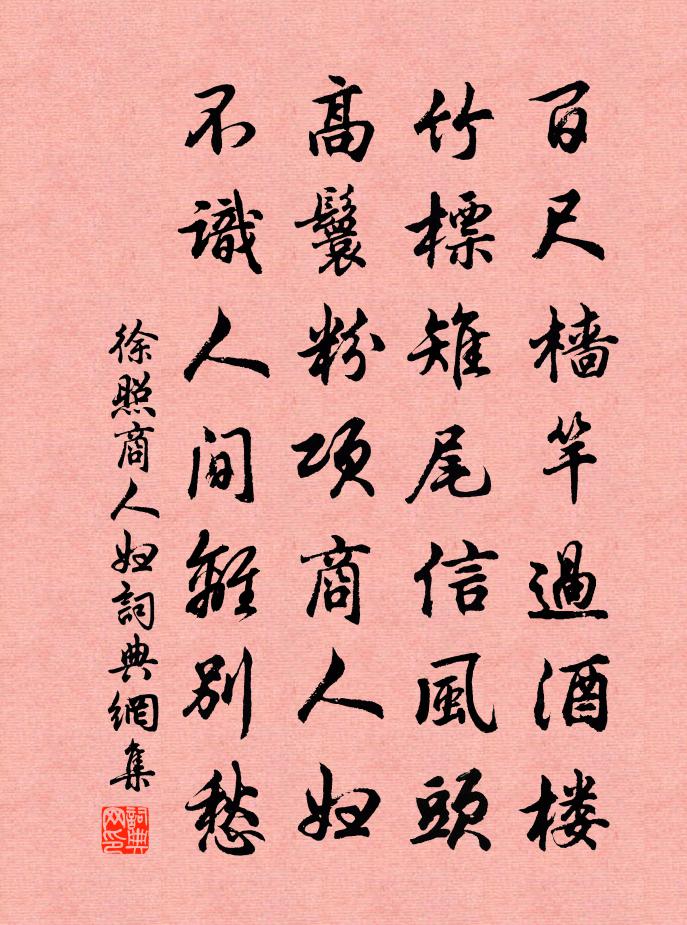 百尺檣竿過酒楼
竹標雉尾信風頭
高鬟粉项商人妇
不識人间離別愁
徐照商人妇詞典網集
詞典网印